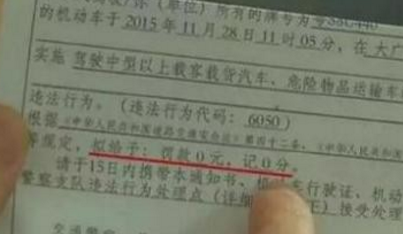 你（单位）所有的牌号为粤SSC440
的机动车于 2015 年 11 月 28 日 11 时 05 分，在 大广
实施 驾驶中型以上载客载货汽车、危险物品运输车
违法行为。（违法行为代码： 6050）
根据《中华人民共和国道路交通安全法》第四十二条、《中华人民共和国
等规定，拟给予：罚款 0 元，记 0 分。
请于15日内携带本通知书、机 行驶证、机动
警察支队违法行为处理点（详细 ）接受处理